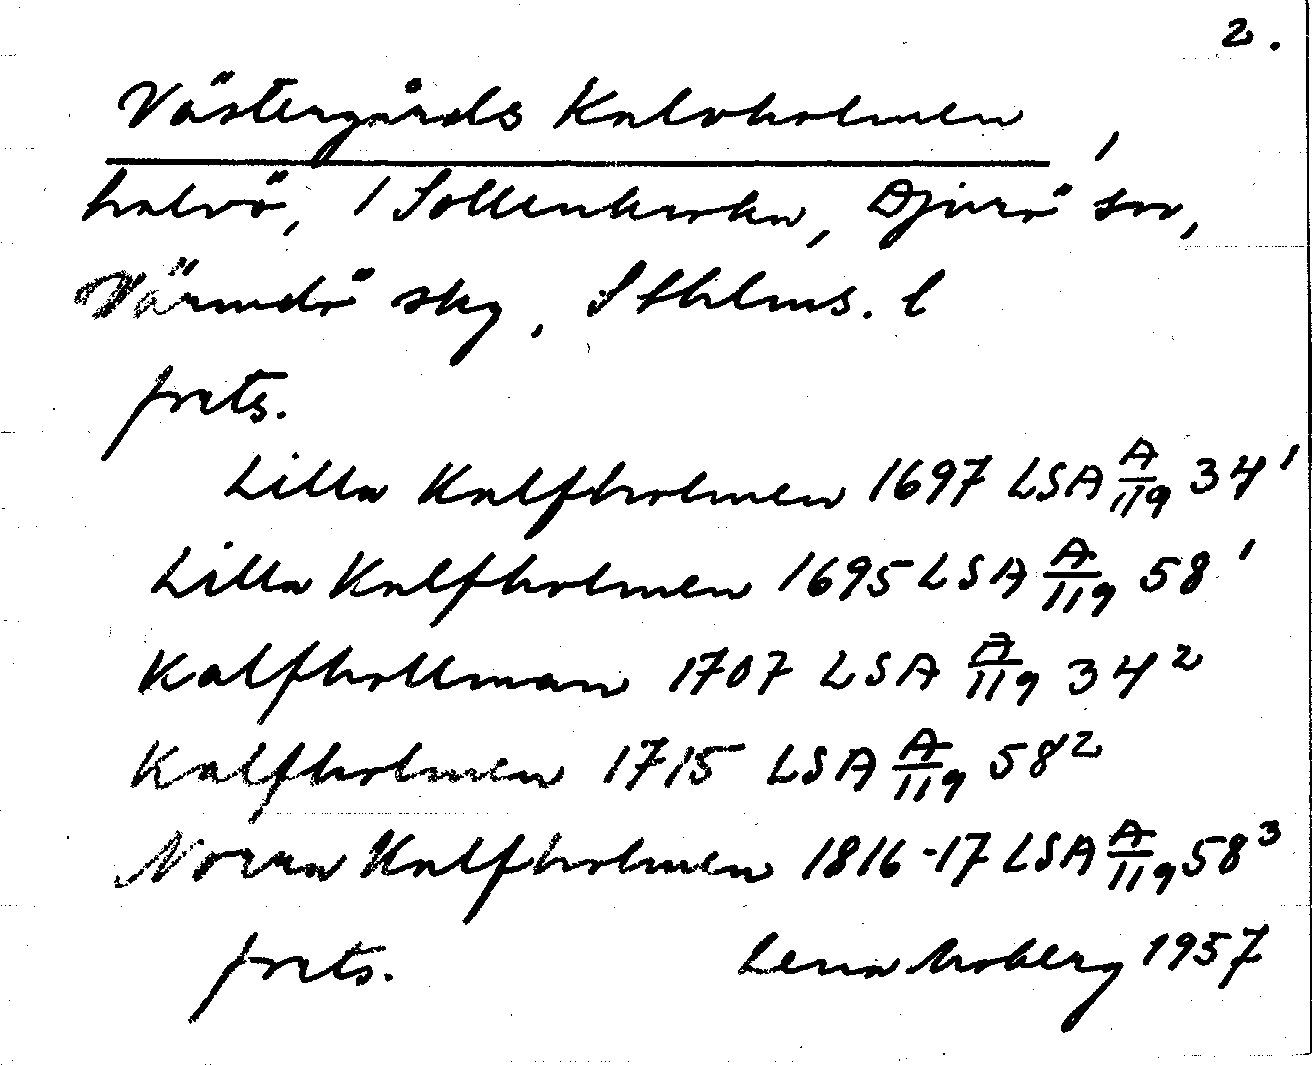 2.
Västergårds Kalvholmen,
halvö, / Sollenkroka, Djurö sn,
Värmdö skg, Sthlms. l
forts.
Lilla Kalfholmen 1697 LSA A/119 34¹
Lilla Kalfholmen 1695 LSA A/119 58¹
Kalfhollman 1707 LSA A/119 34²
Kalfholmen 1715 LSA A/119 58²
Norra Kalfholmen 1816-17 LSA A/119 58³
forts. Lena Moberg 1957